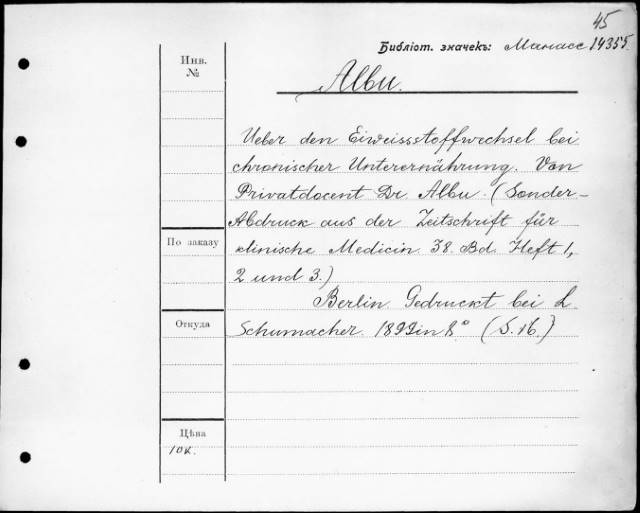 45
Библіот. значекъ: Манасс 14355.
Инв.
№
Albu.
Ueber den Eiweissstoffwechsel bei
chronischer Unterernährung. Von
Privatdocent Dr. Albu. (Sonder-
Abdruck aus der Zeitschrift für
По заказу
klinische Medicin. 38. Bd. Heft 1,
2 und 3.)
Berlin. Gedruckt bei L
Откуда
Schumacher. 1899 in 8.° (S. 16.)
Цѣна
10к.